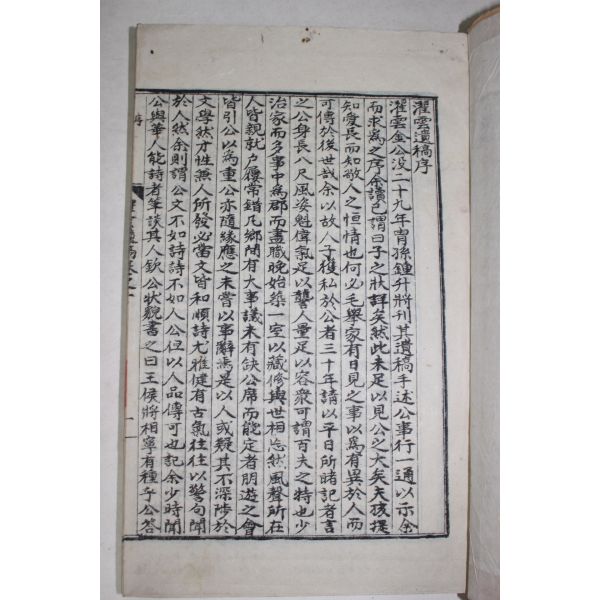 濯雲遺稿序
濯雲金公没二十九年胄孫鍾升將刊其遺稿手述公事行一通以示余
而求為之序余讀已謂曰子之狀詳矣然此未足以見公之大矣夫孩提
知愛長而知敬人之恒情也何必毛擧家有日見之事以為有異於人而
可傳於後世哉余以故人子獲私於公者三十年請以平日所睹記者言
之公身長八尺風姿魁偉氣足以讋人量足以容衆可謂百夫之特也少
治家而多事中為郡而盡職晚始築一室以藏修與世相忘然風聲所在
人皆親就户屨常錯凡鄉間有大事議未有缺公席而能定者朋遊之會
皆引公以為重公亦隨緣應之未嘗以事辭焉是以人或疑其不深陟於
文學然才性兼人所發必當文皆和順詩尤雅健有古氣往往以警句聞
於人然余則謂公文不如詩詩不如人公但以人品傳可也記余少時聞
公與華人能詩者筆談其人欽公狀貌書之曰王侯將相寧有種乎公答
序
一